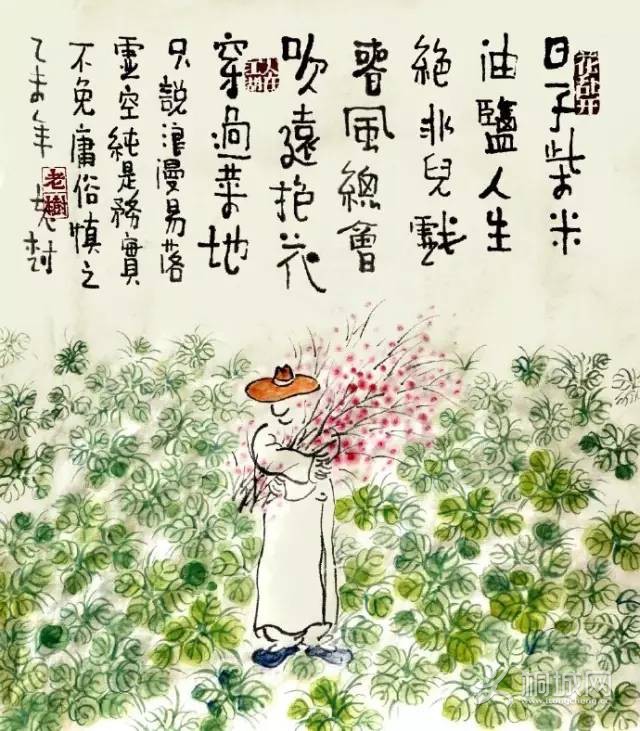 花乱开
日子柴米
油鹽人生
絕非兒戲
春風總會
吹遠抱花
人在江湖
穿過菜地
只說浪漫易落
虛空純是務實
不免庸俗慎之
乙未年 老树
老樹
桐城网